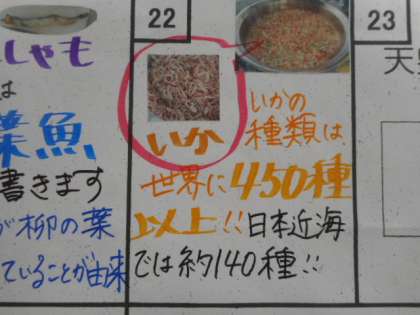 22
23
ししゃも
は
葉魚
書きます
が柳の葉
ていることが由来
いか
いかの
種類は
世界に450種
以上!!日本近海
では約140種!!
天